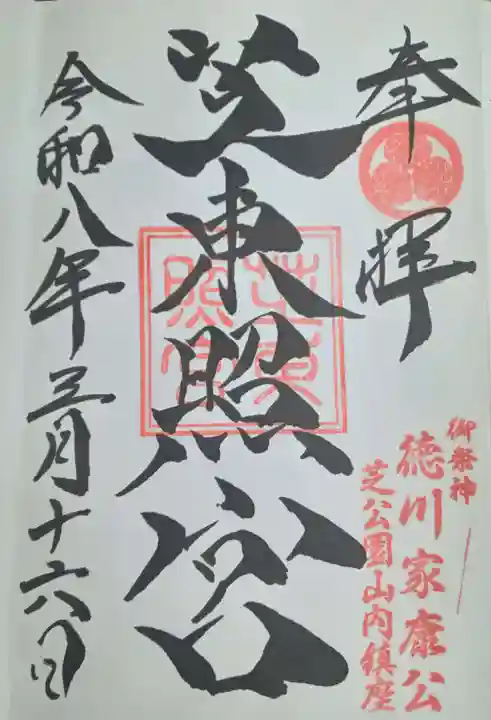 奉拝
芝東照宮
芝東照宮
令和八年三月十六日
御祭神
徳川家康公
芝公園山内鎮座